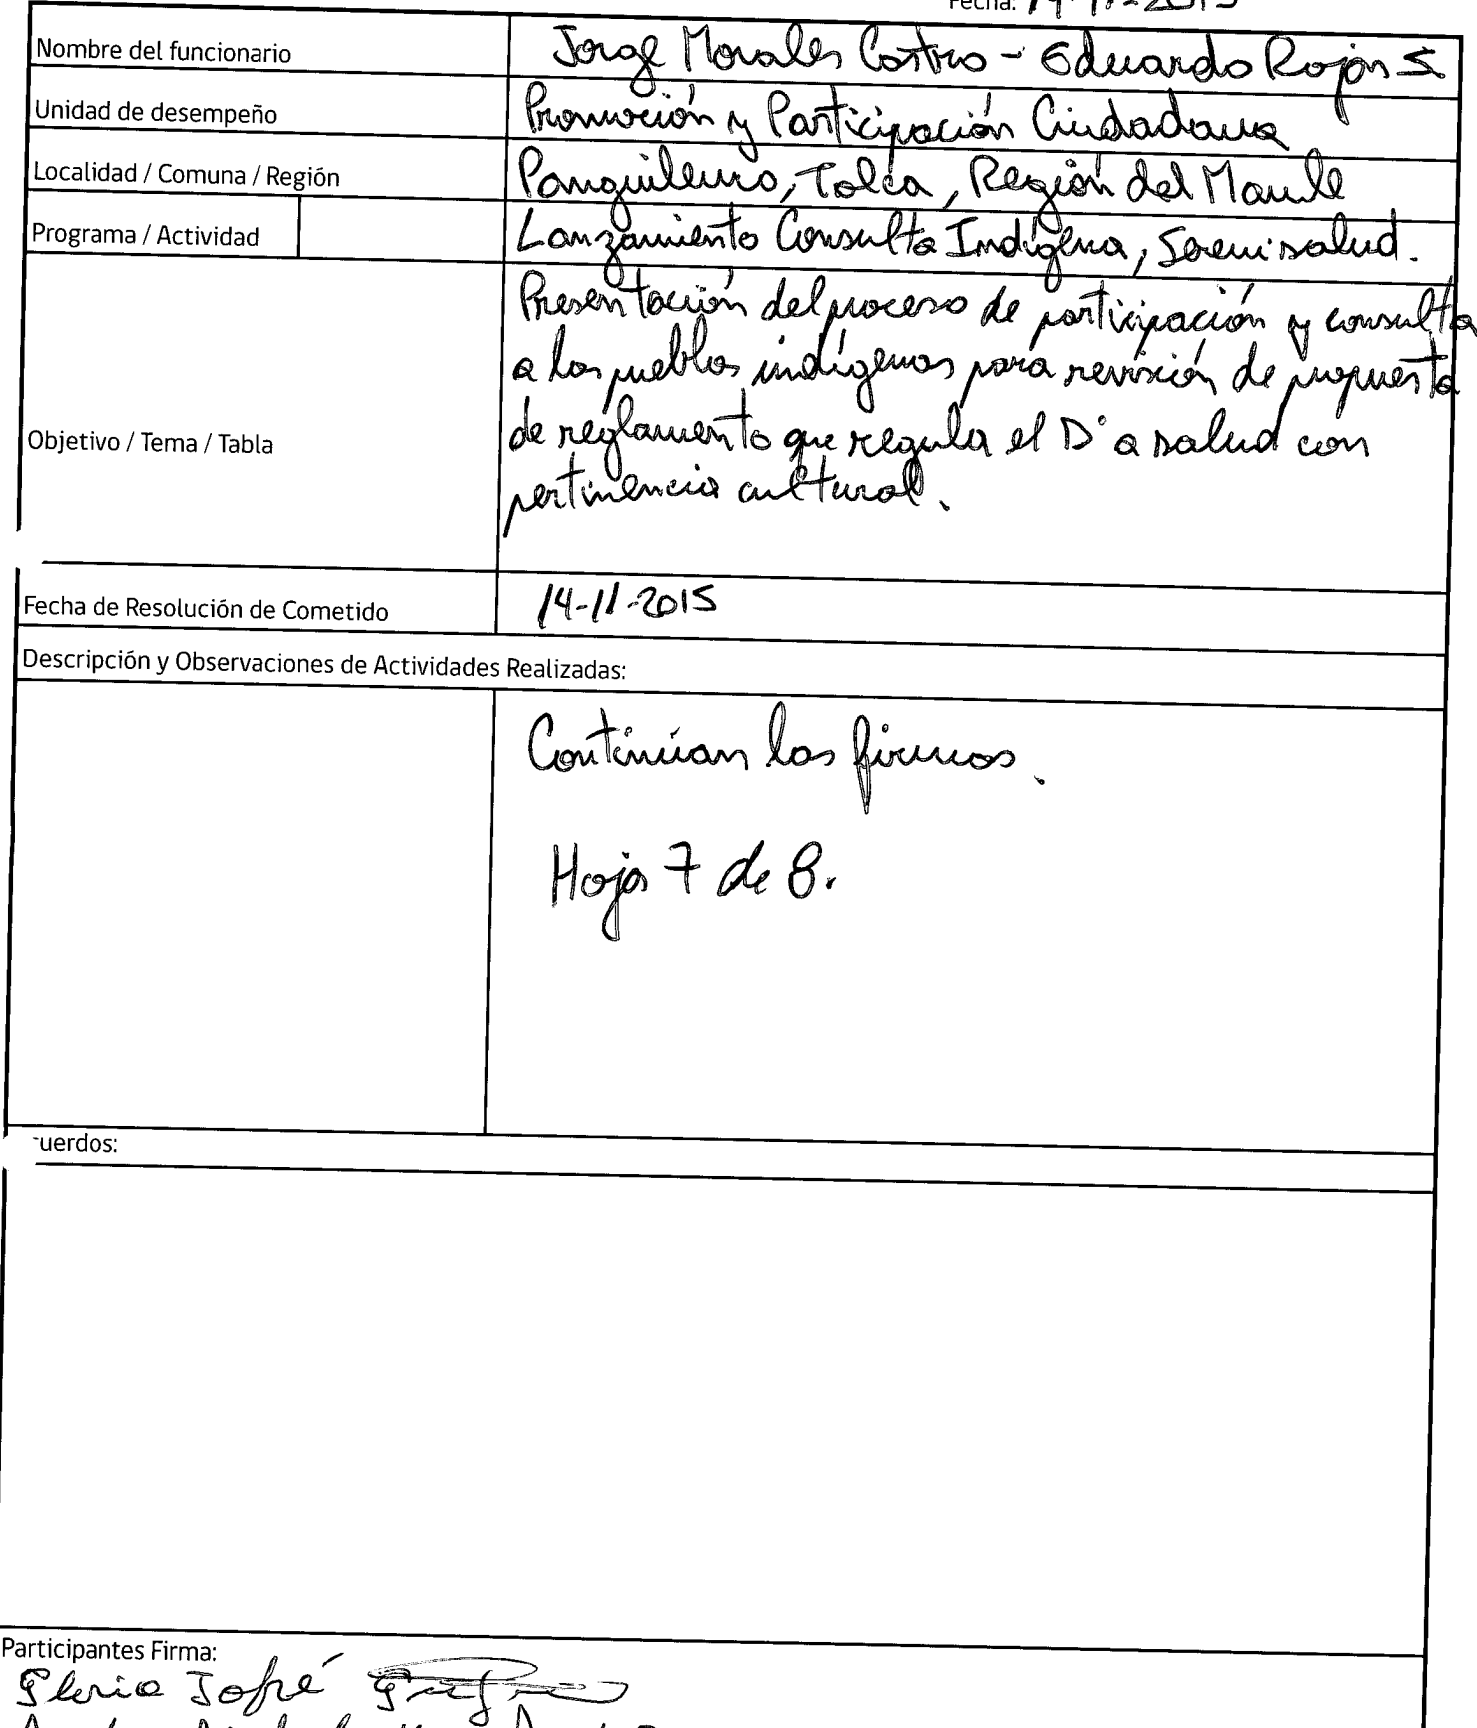 Fecha: 14-11-2015
Nombre del funcionario Jorge Morales Castro - Eduardo Rojas S.
Unidad de desempeño Promoción y Participación Ciudadana
Localidad / Comuna / Región Panguilemo, Talca, Región del Maule
Programa / Actividad Lanzamiento Consulta Indígena, Seremi salud.
Presentación del proceso de participación y consulta
a los pueblos indígenas para revisión de propuesta
Objetivo / Tema / Tabla de reglamento que regula el D° a salud con
pertinencia cultural.
Fecha de Resolución de Cometido 14-11-2015
Descripción y Observaciones de Actividades Realizadas:
Continúan las firmas.
Hoja 7 de 8.
uerdos:
Participantes Firma:
Gloria Jofré